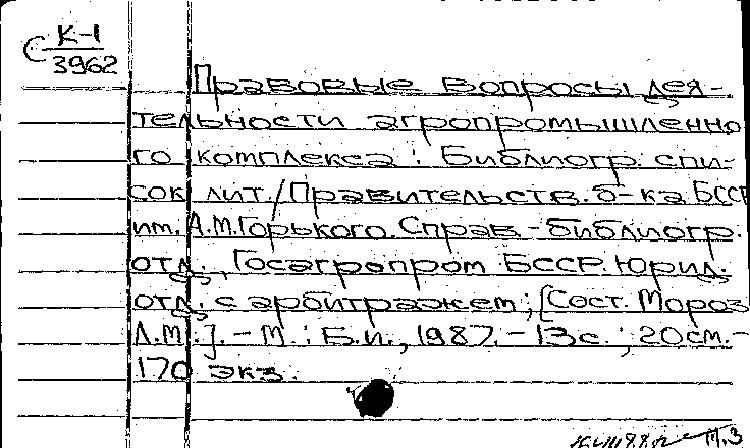 С К-1
3962
Правовые вопросы дея-
тельности агропромышленно
го комплекса : Библиогр. спи-
сок лит./Правительств. б-ка БССР
им. А.М.Горького. Справ.-библиогр.
отд., Госагропром БССР. Юрид.
отд. с арбитражем; [Сост. Мороз
Л.М.]. - М. : Б.и., 1987. - 13с. ; 20см. -
170 экз.